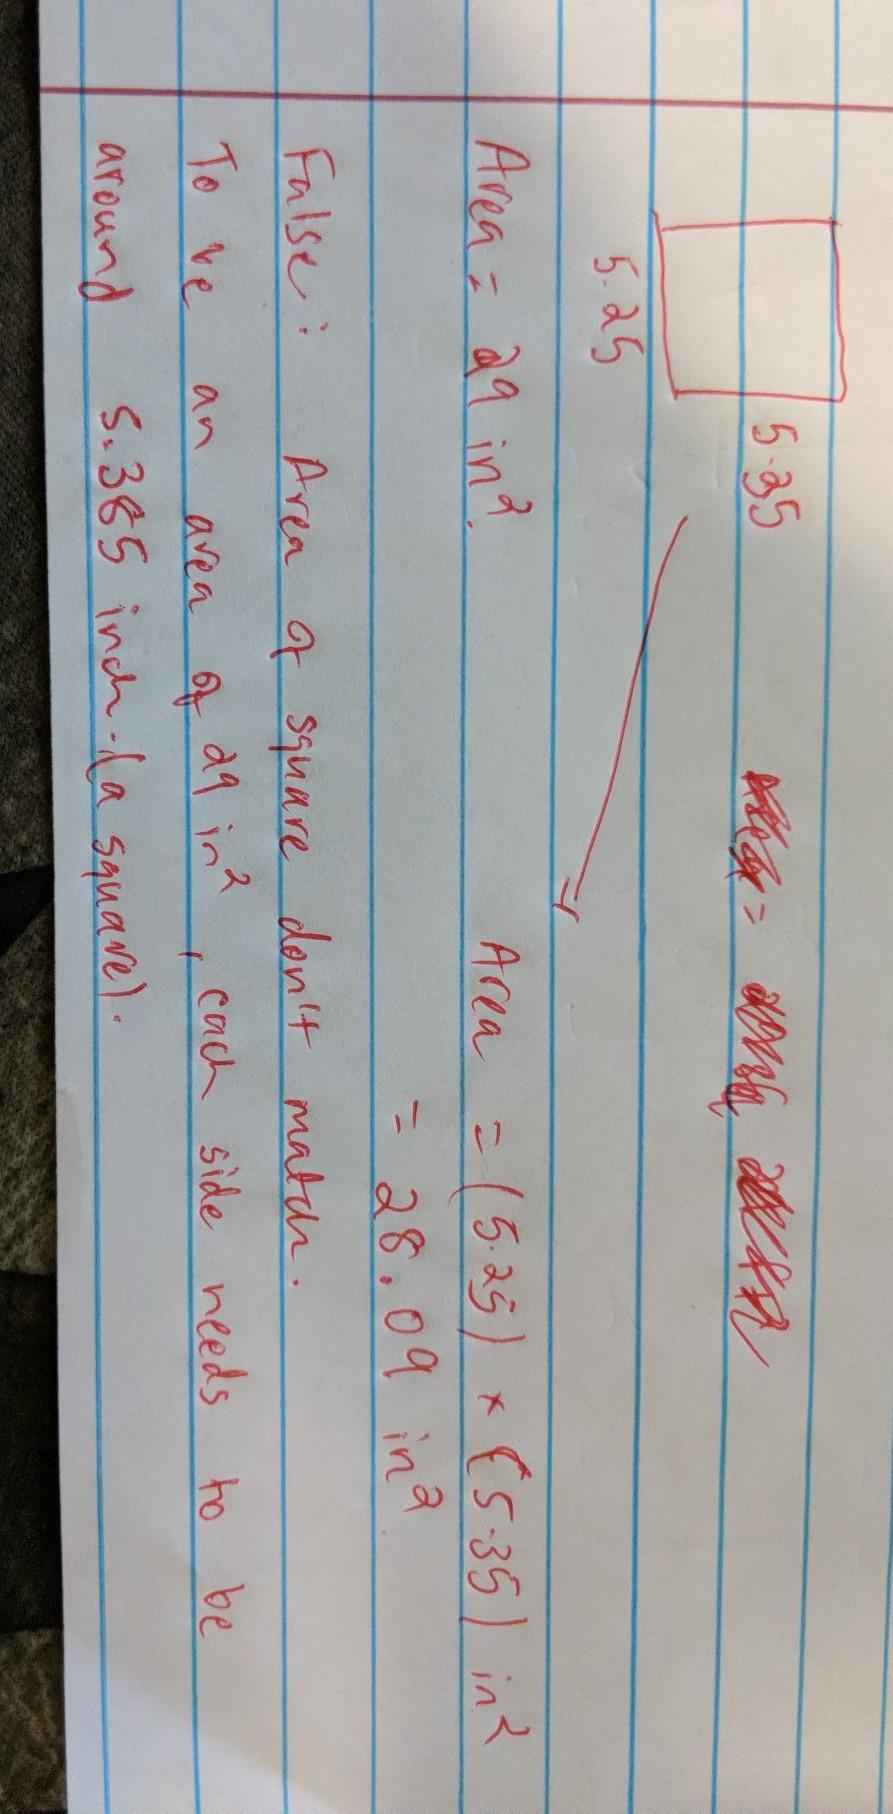 5.35
5.25
Area = 29 in².
Area = (5.25) × (5.35) in²
= 28.09 in²
False: Area of square don't match.
To be an area of 29 in², each side needs to be
around 5.385 inch. (a square).